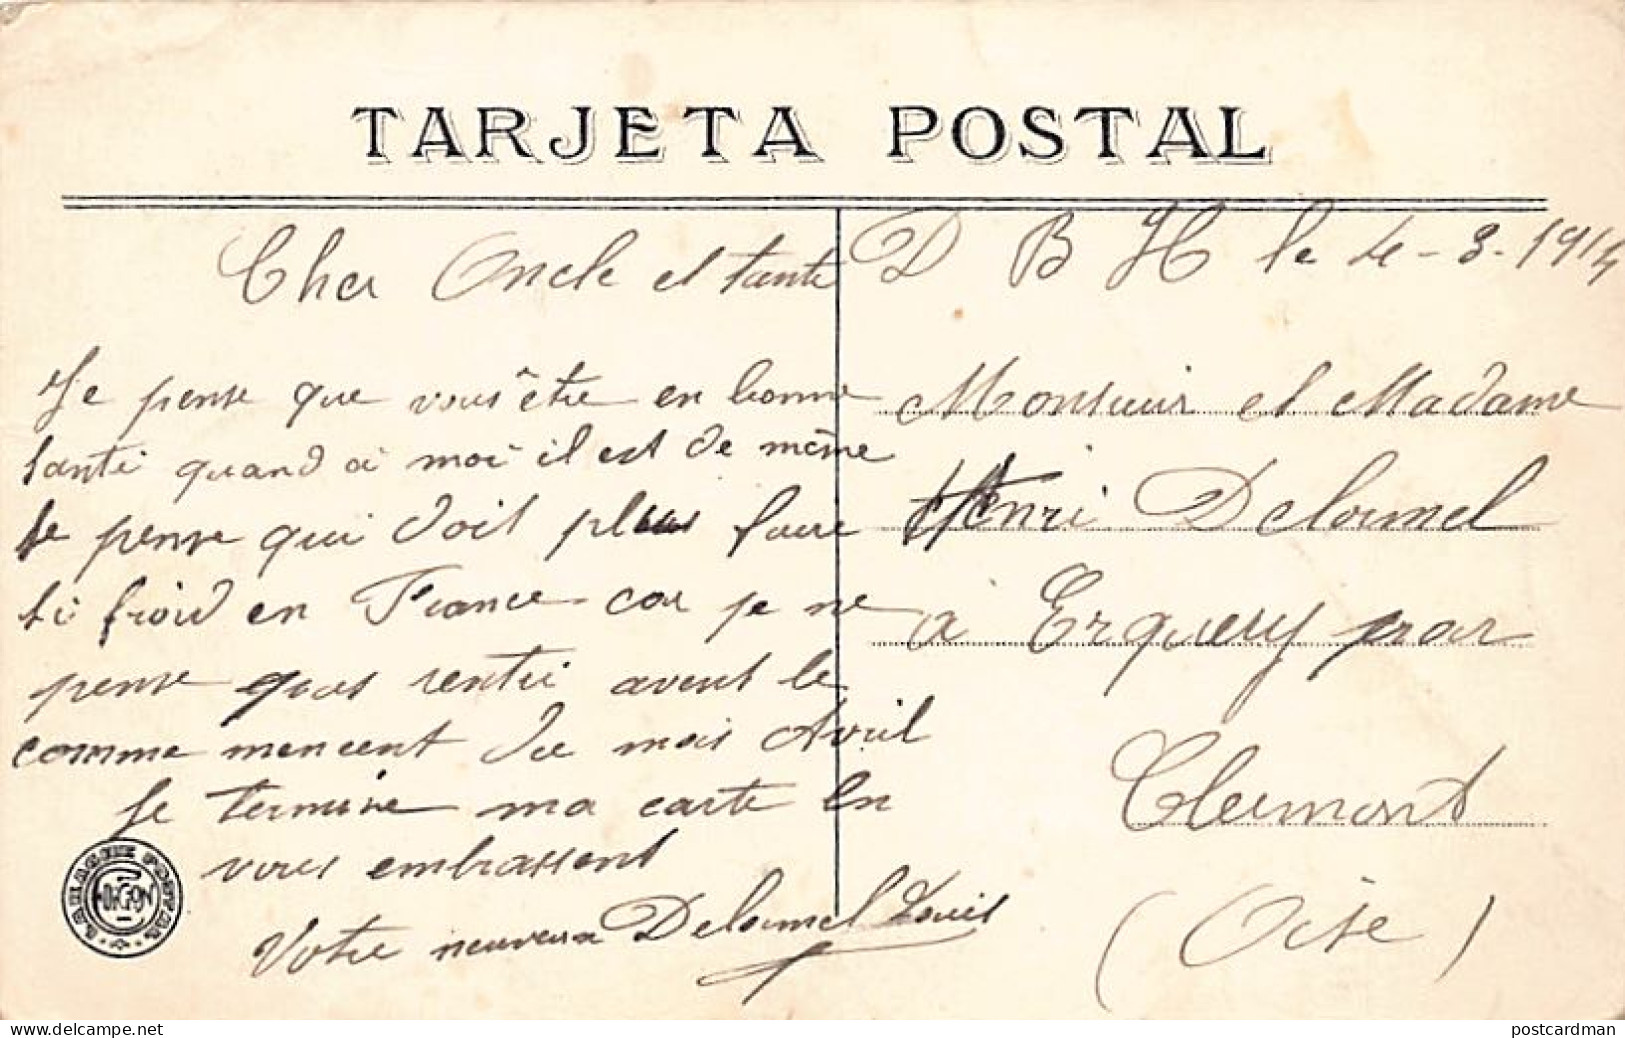 TARJETA POSTAL
D B H le 4-3-1914
Cher Oncle et tante
Je pense que vous être en bonne
santé quand à moi il est de même
Je pense qui doit plus faire
si froid en France car je ne
pense pas rentré avent le
comme mencent du mois Avril
Je termine ma carte en
vous embrassent
Votre neuveux Delormel Louis
Monsieur et Madame
Henri Delormel
à Erquery par
Clermont
(Oise)
www.delcampe.net
postcardman